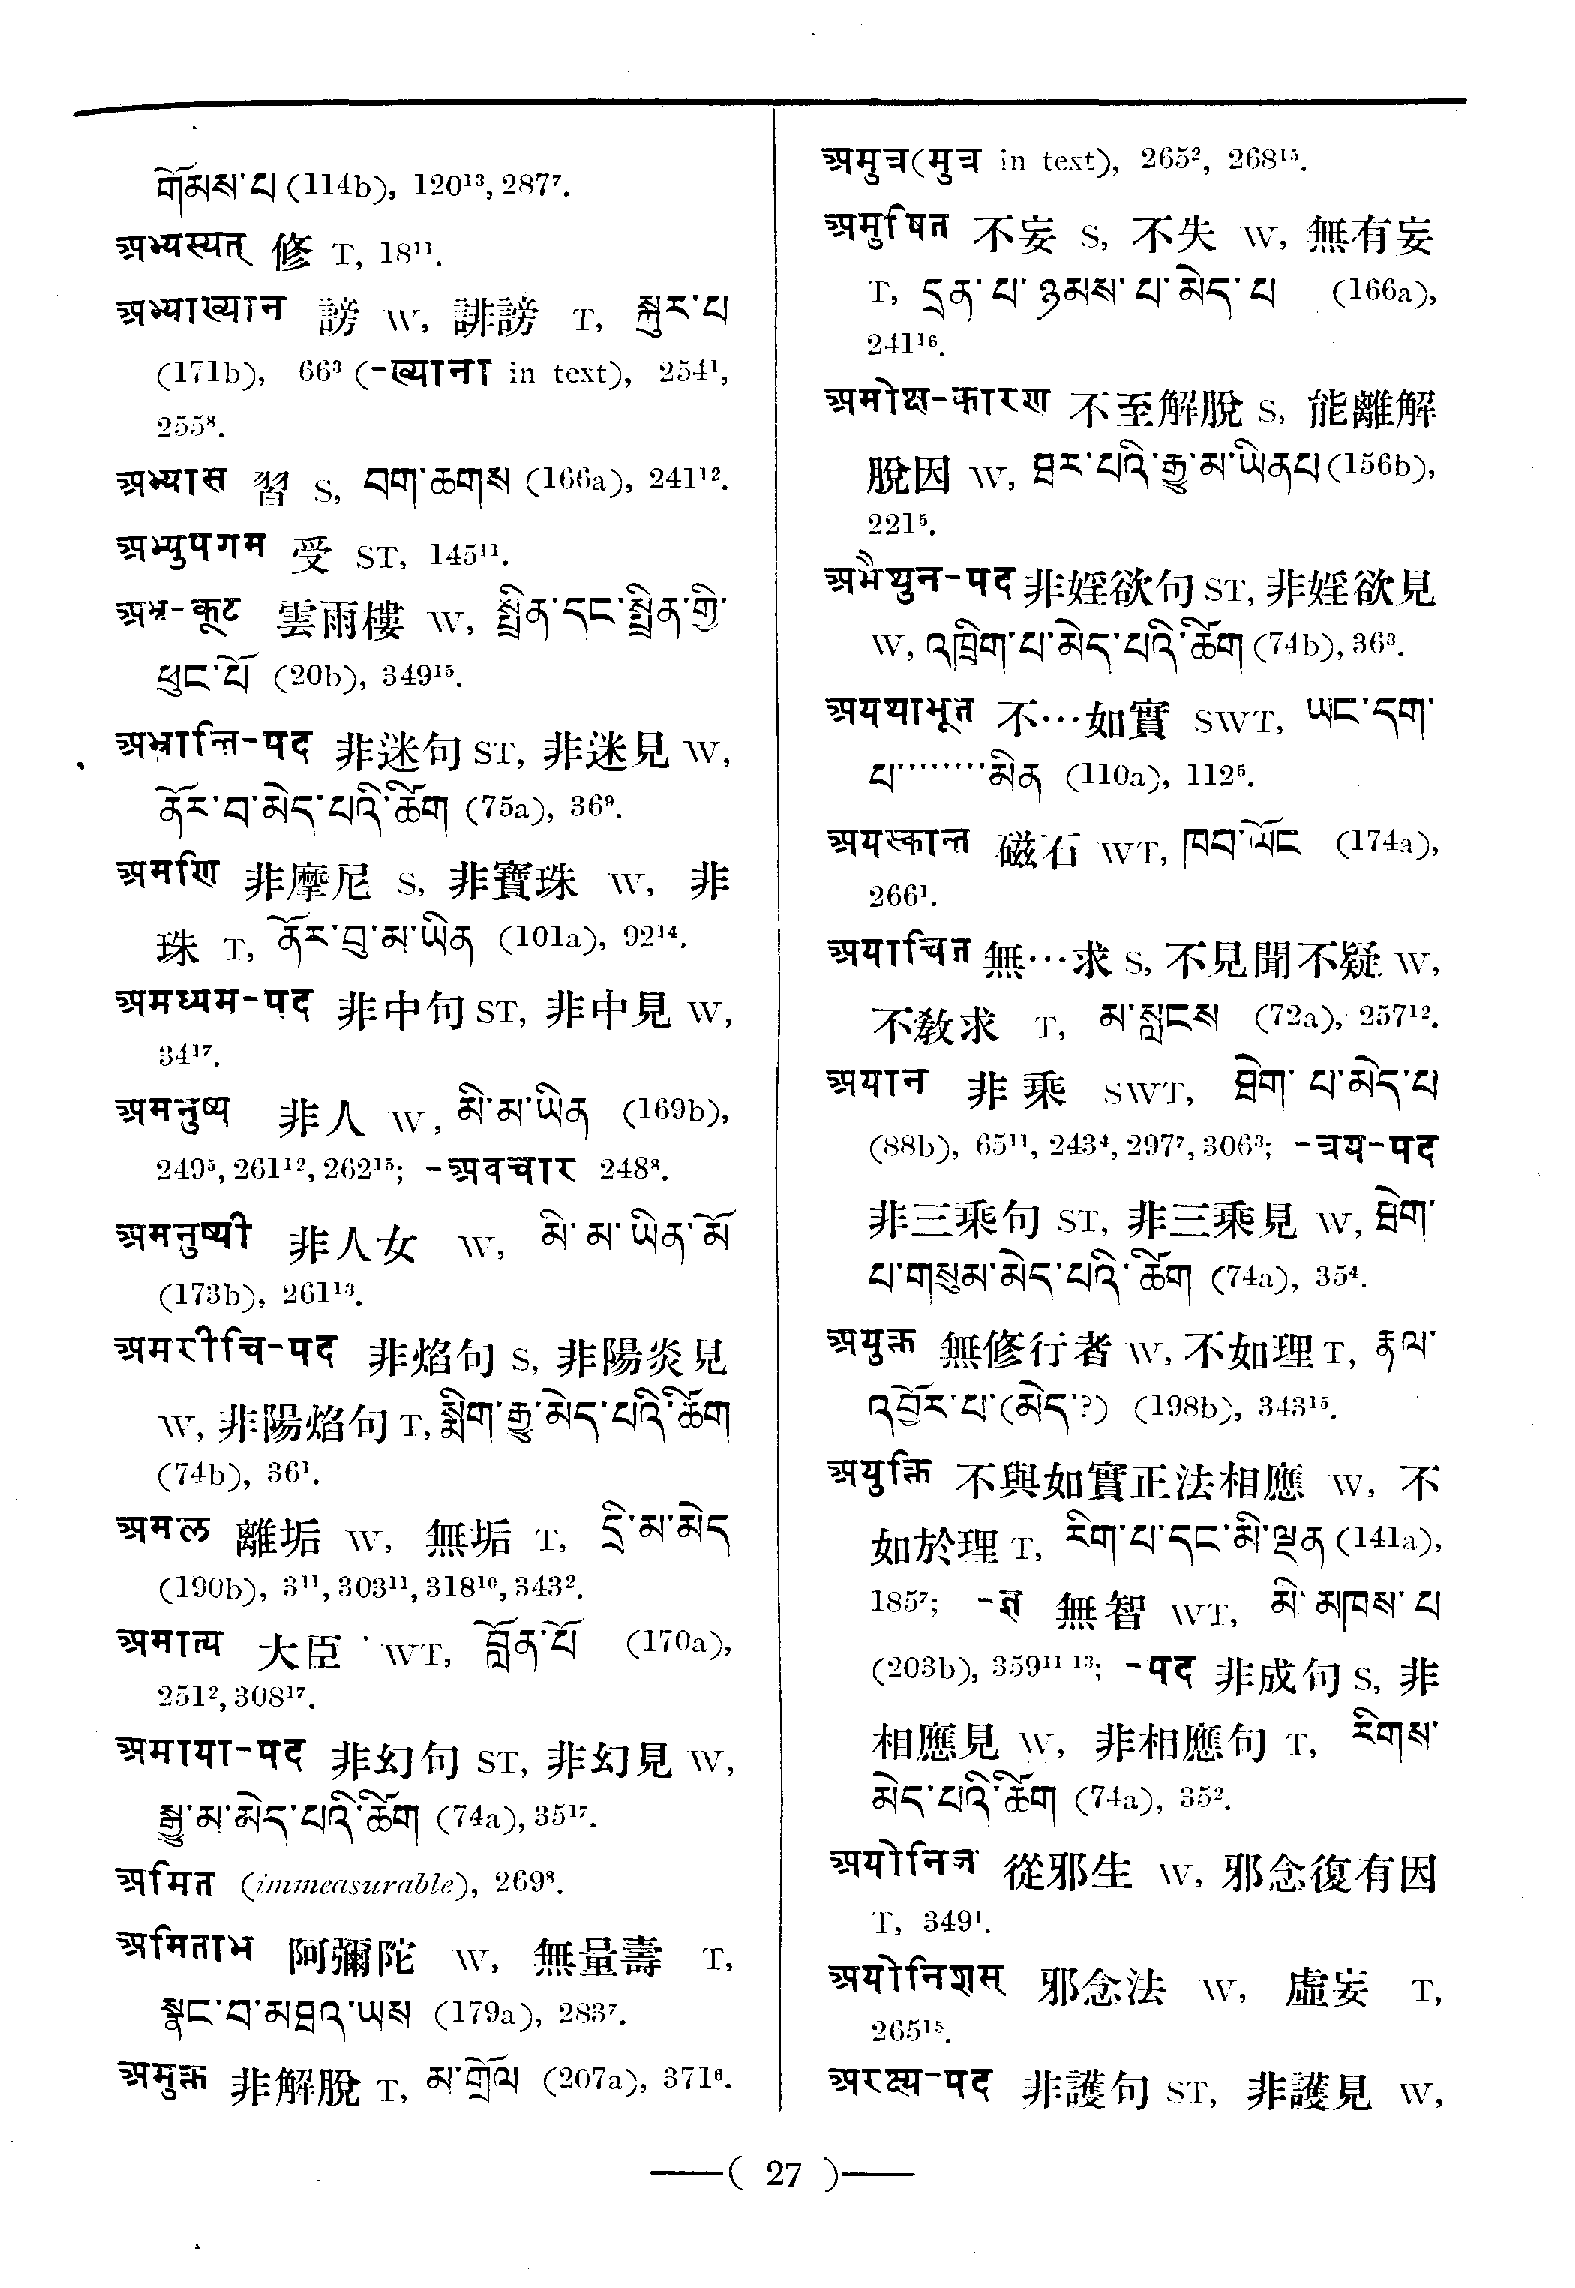 གོམས་པ (114b), 120¹³, 287⁷.
अभ्यस्यत् 修 T, 18¹¹.
अभ्याख्यान 謗 W, 誹謗 T, སྐུར་པ
(171b), 66³ (-ख्याना in text), 254¹,
255⁸.
अभ्यास 習 S, བག་ཆགས (166a), 241¹².
अभ्युपगम 受 ST, 145¹¹.
अभ्र-कूट 雲雨樓 W, སྤྲིན་དང་སྤྲིན་གྱི་
ཕུང་པོ (20b), 349¹⁵.
अभ्रान्ति-पद 非迷句 ST, 非迷見 W,
ནོར་བ་མེད་པའི་ཚིག (75a), 36⁹.
अमणि 非摩尼 S, 非寶珠 W, 非
珠 T, ནོར་བུ་མ་ཡིན (101a), 92¹⁴.
अमध्यम-पद 非中句 ST, 非中見 W,
34¹⁷.
अमनुष्य 非人 W, མི་མ་ཡིན (169b),
249⁵, 261¹², 262¹⁵; -अवचार 248⁸.
अमनुष्यी 非人女 W, མི་མ་ཡིན་མོ
(173b), 261¹³.
अमरीचि-पद 非焰句 S, 非陽炎見
W, 非陽焰句 T, སྨིག་རྒྱུ་མེད་པའི་ཚིག
(74b), 36¹.
अमल 離垢 W, 無垢 T, དྲི་མ་མེད
(190b), 3¹¹, 303¹¹, 318¹⁰, 343².
अमात्य 大臣 WT, བློན་པོ (170a),
251², 308¹⁷.
अमाया-पद 非幻句 ST, 非幻見 W,
སྒྱུ་མ་མེད་པའི་ཚིག (74a), 35¹⁷.
अमित (immeasurable), 269⁸.
अमिताभ 阿彌陀 W, 無量壽 T,
སྣང་བ་མཐའ་ཡས (179a), 283⁷.
अमुक्त 非解脫 T, མ་གྲོལ (207a), 371⁶.
अमुत्र (मुत्र in text), 265², 268¹⁵.
अमुषित 不妄 S, 不失 W, 無有妄
T, དྲན་པ་ཉམས་པ་མེད་པ (166a),
241¹⁶.
अमोक्ष-कारण 不至解脫 S, 能離解
脫因 W, ཐར་པའི་རྒྱུ་མ་ཡིནཔ (156b),
221⁵.
अमैथुन-पद 非婬欲句 ST, 非婬欲見
W, འཁྲིག་པ་མེད་པའི་ཚིག (74b), 36³.
अयथाभूत 不…如實 SWT, ཡང་དག་
པ………མིན (110a), 112⁵.
अयस्कान्त 磁石 WT, ཁབ་ལོང (174a),
266¹.
अयाचित 無…求 S, 不見聞不疑 W,
不敎求 T, མ་སླངས (72a), 257¹².
अयान 非乘 SWT, ཐེག་པ་མེད་པ
(88b), 65¹¹, 243⁴, 297⁷, 306³; -त्रय-पद
非三乘句 ST, 非三乘見 W, ཐེག་
པ་གསུམ་མེད་པའི་ཚིག (74a), 35⁴.
अयुक्त 無修行者 W, 不如理 T, རྣལ་
འབྱོར་པ་(མེད་?) (198b), 343¹⁵.
अयुक्ति 不與如實正法相應 W, 不
如於理 T, རིག་པ་དང་མི་ལྡན (141a),
185⁷; -ज्ञ 無智 WT, མི་མཁས་པ
(203b), 359¹¹ ¹³; -पद 非成句 S, 非
相應見 W, 非相應句 T, རིགས་
མེད་པའི་ཚིག (74a), 35².
अयोनिज 從邪生 W, 邪念復有因
T, 349¹.
अयोनिशस् 邪念法 W, 虛妄 T,
265¹⁵.
अरक्ष्य-पद 非護句 ST, 非護見 W,
( 27 )